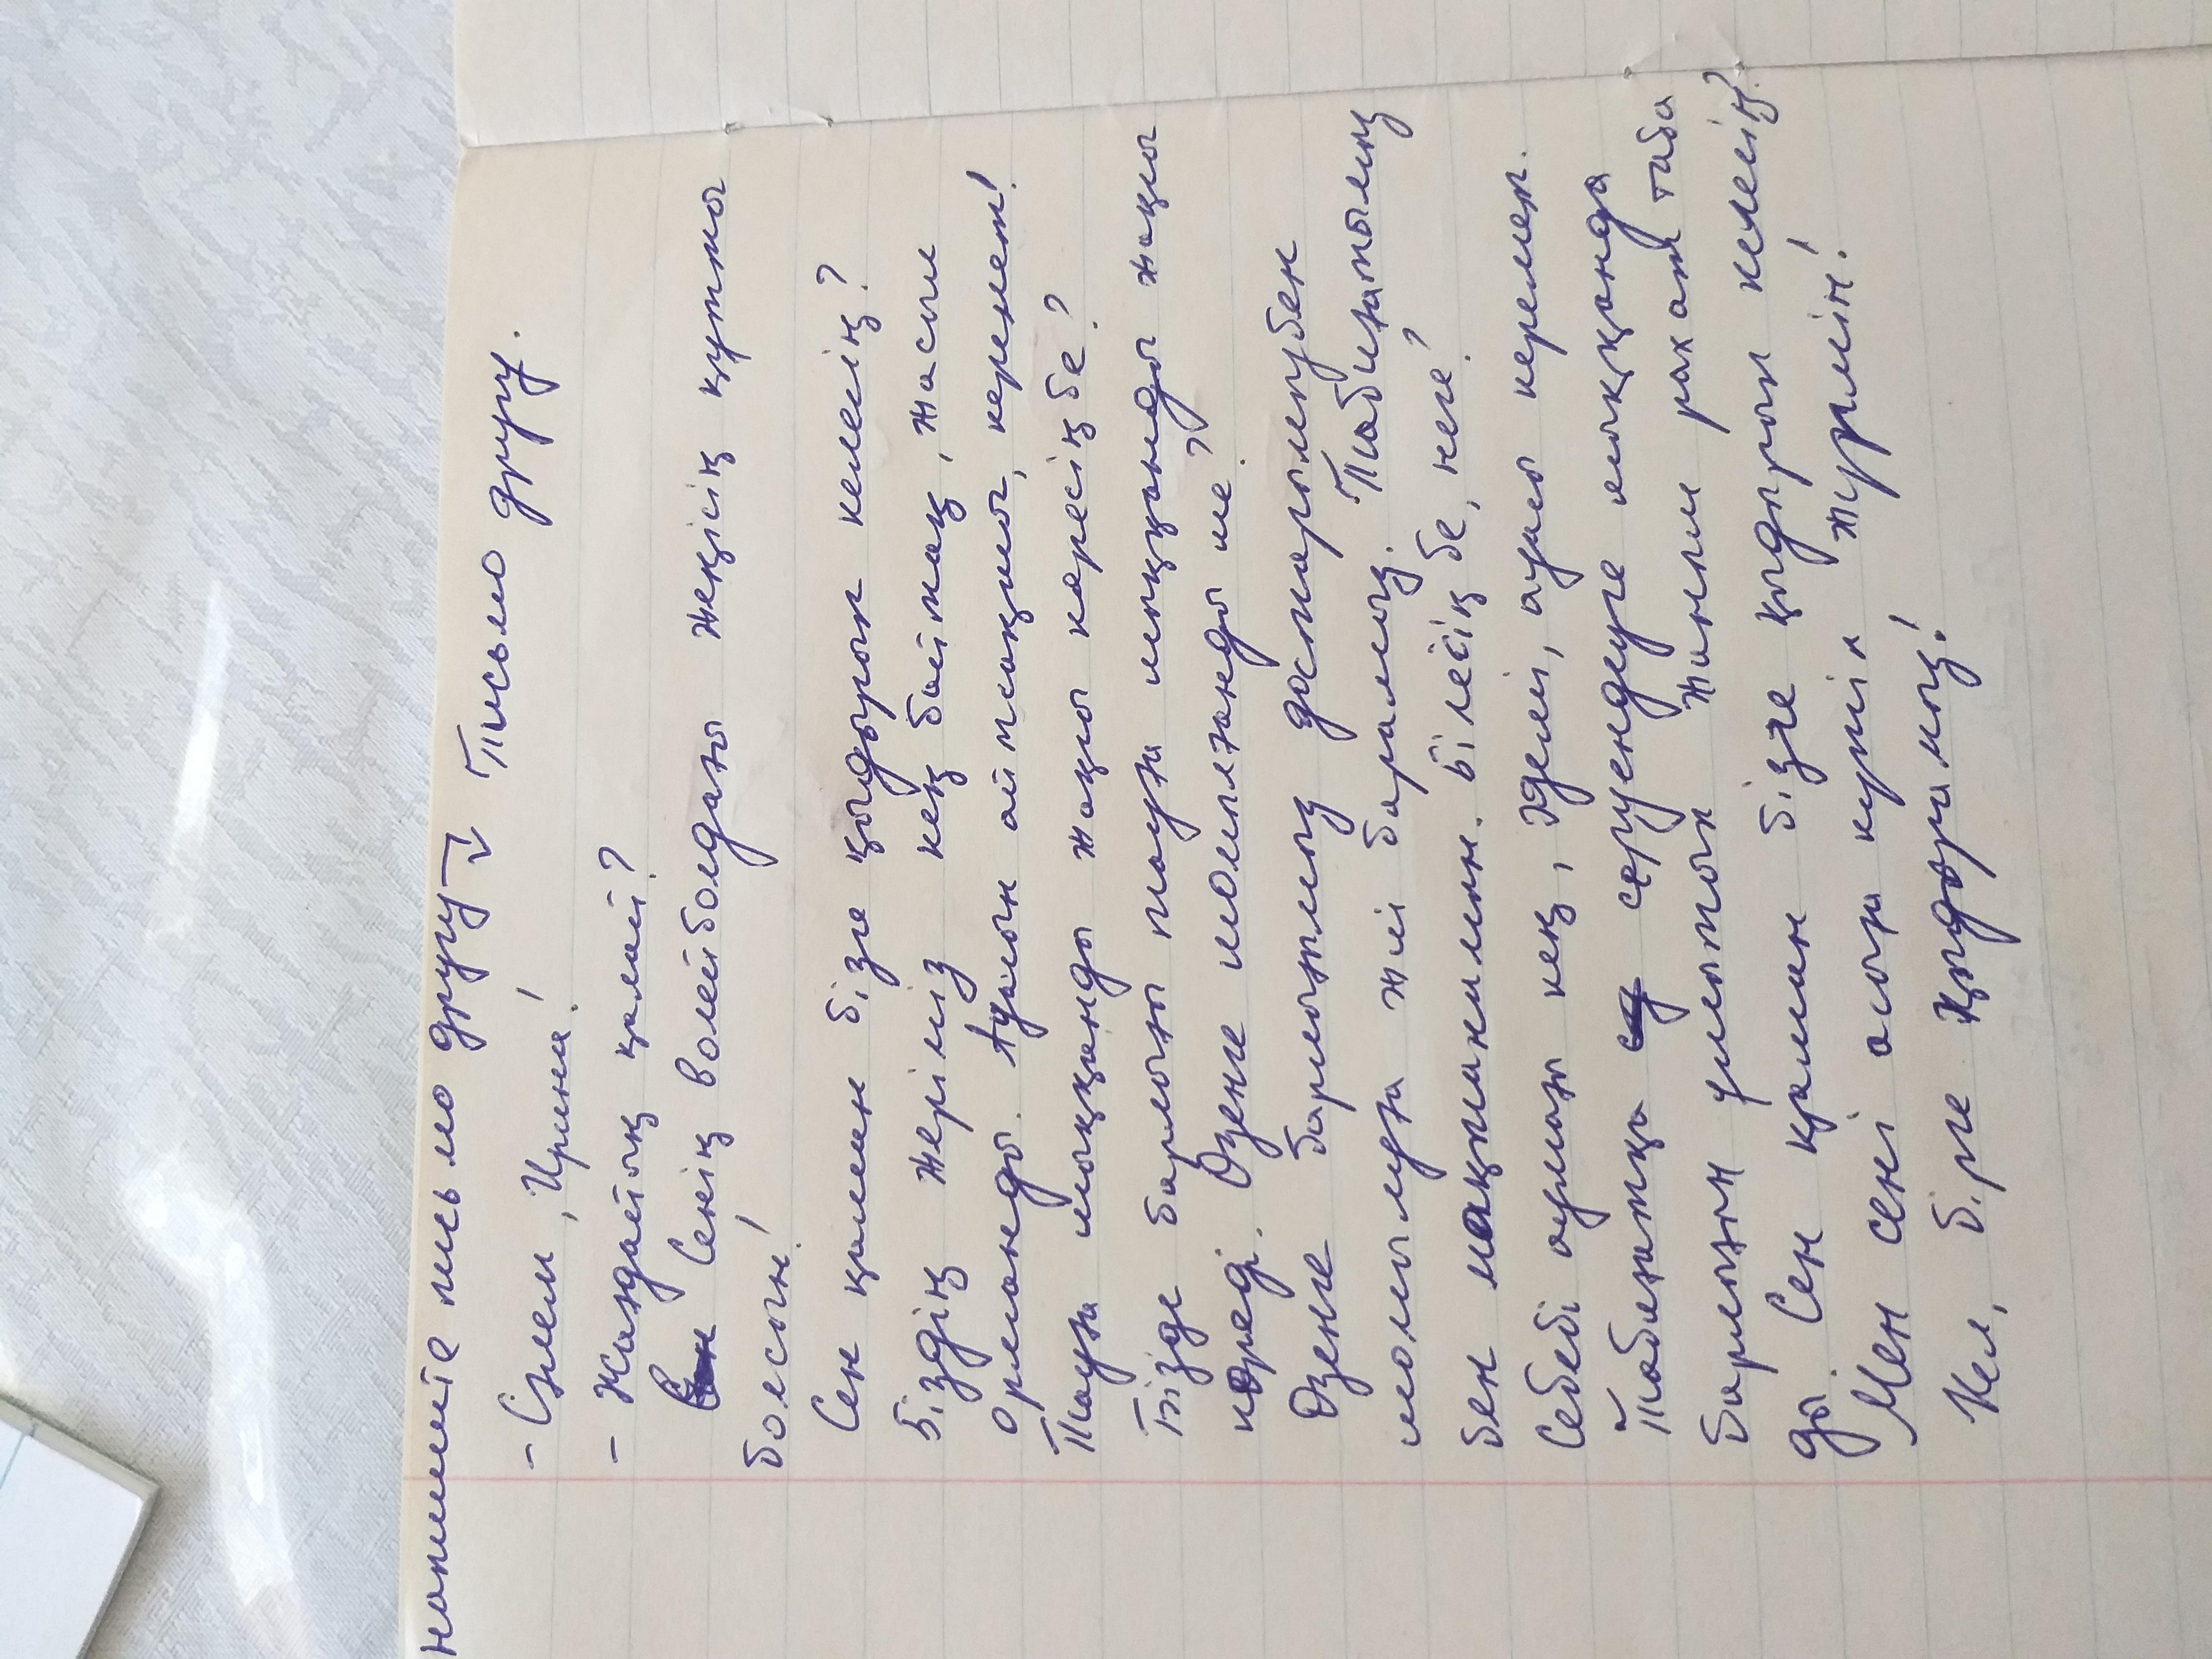 напишите письмо другу → Письмо другу.
- Сәлем, Ирина!
- Жағдайың қалай?
Сенің волейболдағы жеңісің құтты
болсын!
Сен қашан бізге қыдырып келесің?
Біздің жеріміз кең байтақ, жасыл
орманды. Ауасын айтсаңшы, керемет!
Тауға шыққанды жақсы көресің бе?
Бізде барлығы тауға шыққанды жақсы
көреді. Өзенге шомылғанды ше?
Өзенге барлығымыз достарымызбен
шомылуға жиі барамыз. Табиғатымыз
бен мақтанамын. Білесің бе, неге?
Себебі аумағы кең, әдемі, ауасы керемет.
Табиғатқа серуендеуге шыққанда
барлығы ұмытып жаным рахат таба
ды. Сен қашан бізге қыдырып келесің?
Мен сені асыға күтіп жүрмін!
Кел, бірге қыдырамыз!